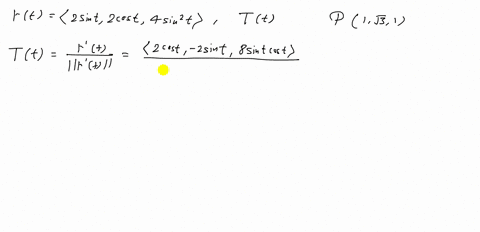 r(t) = ⟨2sint, 2cost, 4sin²t⟩ , T(t) P (1, √3, 1)
T(t) = r'(t) / ||r'(t)|| = ⟨2cost, -2sint, 8sint cost⟩